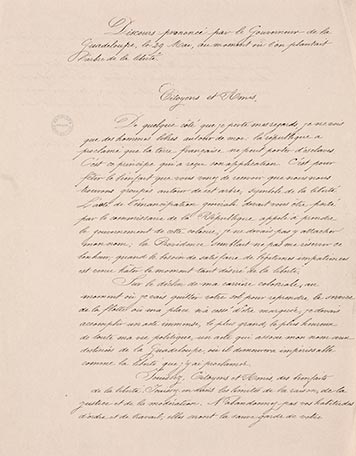 Discours prononcé par le Gouverneur de la
Guadeloupe, le 29 Mai, au moment où l'on plantait
l'arbre de la liberté.
Citoyens et Amis,
De quelque côté que je porte mes regards, je ne vois
que des hommes libres autour de moi. La république a
proclamé que la terre française ne peut porter d'esclaves
C'est ce principe qui a reçu son application. C'est pour
fêter le bienfait que vous venez de recevoir que nous nous
trouvons groupés autour de cet arbre, symbole de la liberté.
L'acte de l'émancipation générale devait vous être porté
par le commissaire de la République appelé à prendre
le gouvernement de cette colonie, je ne devais pas y attacher
mon nom; la Providence semblait ne pas me réserver ce
bonheur, quand le besoin de satisfaire de légitimes impatiences
est venu hâter le moment tant désiré de la liberté.
Sur le déclin de ma carrière coloniale, au
moment où je vais quitter votre sol pour reprendre le service
de la flotte où ma place n'a cessé d'être marquée, je devais
accomplir un acte immense, le plus grand, le plus heureux
de toute ma vie politique, un acte qui attache mon nom aux
destinées de la Guadeloupe, où il demeurera impérissable
comme la liberté que j'y ai proclamée.
Jouissez, Citoyens et Amis, des bienfaits
de la liberté. Jouissez-en dans les limites de la raison, de la
justice et de la modération. N'abandonnez pas vos habitudes
d'ordre et de travail, elles sont la sauvegarde de votre